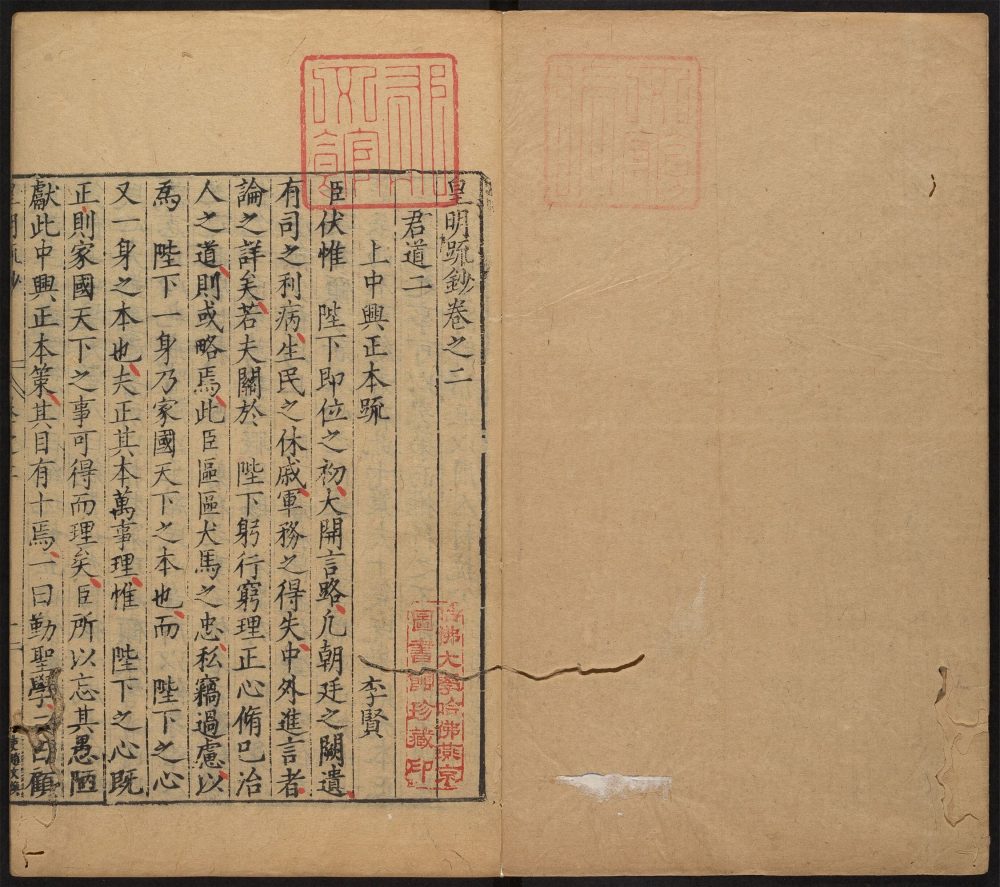 皇明疏鈔卷之二
君道二
上中興正本疏 李賢
臣伏惟 陛下即位之初大開言路凡朝廷之闕遺
有司之利病生民之休戚軍務之得失中外進言者
論之詳矣若夫關於 陛下躬行窮理正心脩巳治
人之道則或略焉此臣區區犬馬之忠私竊過慮以
爲 陛下一身乃家國天下之本也而 陛下之心
又一身之本也夫正其本萬事理惟 陛下之心既
正則家國天下之事可得而理矣臣所以忘其愚陋
獻此中興正本策其目有十焉一曰勤聖學二曰顧
哈佛大學哈佛燕京
圖書館珍藏印